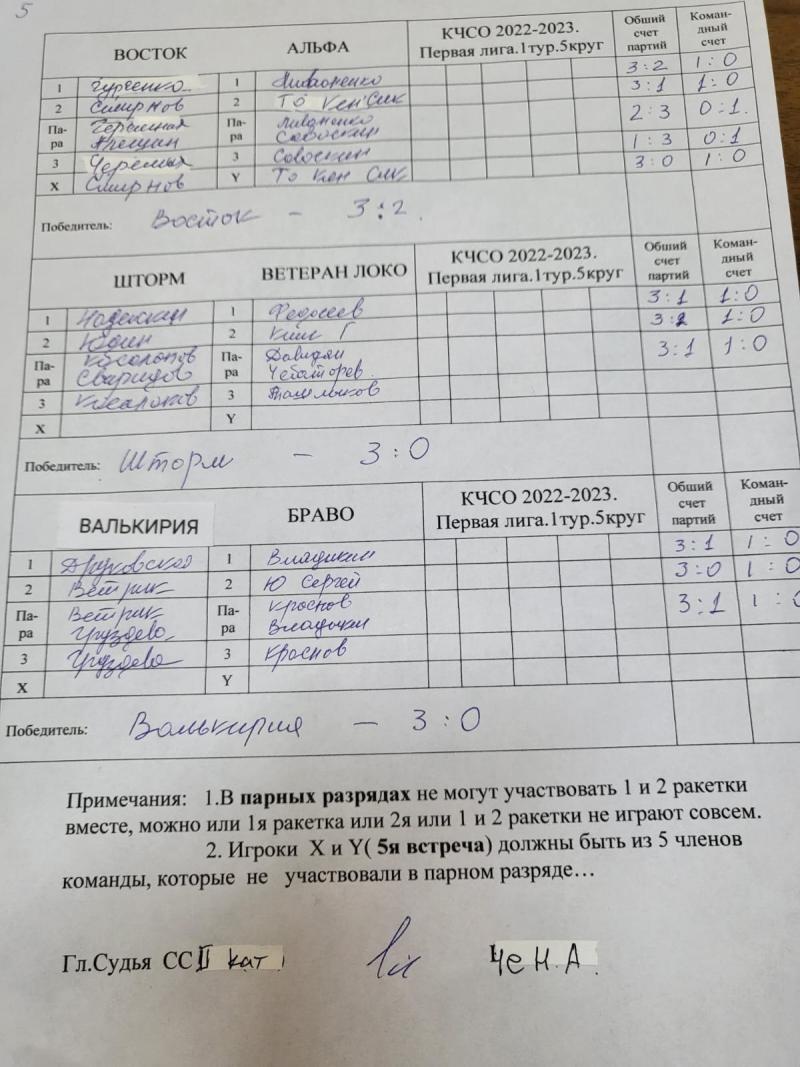 5
ВОСТОК АЛЬФА КЧСО 2022-2023. Первая лига.1тур.5круг Общий счет партий Коман-дный счет
1 Гурченко 1 Ливаненко 3:2 1:0
2 Смирнов 2 То Кен Сик 3:1 1:0
Па-ра Па-ра Ливаненко Савоскин 2:3 0:1
3 3 Савоскин 1:3 0:1
X Смирнов Y То Кен Сик 3:0 1:0
Победитель: Восток - 3:2.
ШТОРМ ВЕТЕРАН ЛОКО КЧСО 2022-2023. Первая лига.1тур.5круг Общий счет партий Коман-дный счет
1 1 Федосеев 3:1 1:0
2 Юдин 2 Ким Г 3: 1:0
Па-ра Косолапов Свиридов Па-ра Давидян 3:1 1:0
3 Косолапов 3
X Y
Победитель: Шторм - 3:0
ВАЛЬКИРИЯ БРАВО КЧСО 2022-2023. Первая лига.1тур.5круг Общий счет партий Коман-дный счет
1 1 Владыкин 3:1 1:0
2 Ветрик 2 Ю Сергей 3:0 1:0
Па-ра Ветрик Груздева Па-ра Краснов Владыкин 3:1 1:0
3 Груздева 3 Краснов
X Y
Победитель: Валькирия - 3:0
Примечания: 1.В парных разрядах не могут участвовать 1 и 2 ракетки
вместе, можно или 1я ракетка или 2я или 1 и 2 ракетки не играют совсем.
2. Игроки X и Y( 5я встреча) должны быть из 5 членов
команды, которые не участвовали в парном разряде…
Гл.Судья СС II кат. Че Н.А.